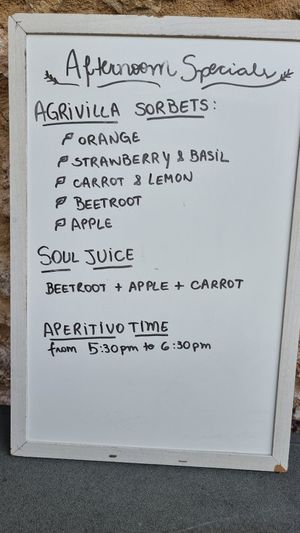 Afternoon Specials
AGRIVILLA SORBETS:
ORANGE
STRAWBERRY & BASIL
CARROT & LEMON
BEETROOT
APPLE
SOUL JUICE
BEETROOT + APPLE + CARROT
APERITIVO TIME
from 5:30pm to 6:30pm